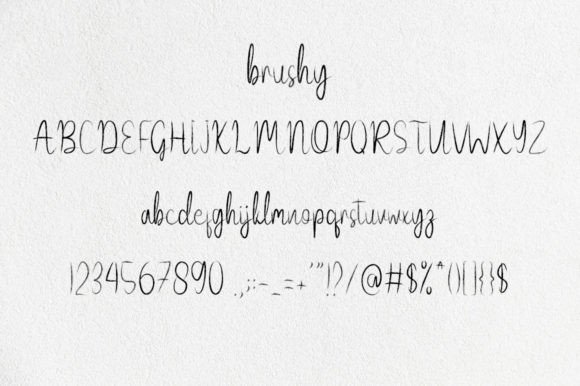 brushy
ABCDEFGHIJKLMNOPQRSTUVWXYZ
abcdefghijklmnopqrstuvwxyz
1234567890 .,;:-_=+ '"!?/@#$%*()[]{}$